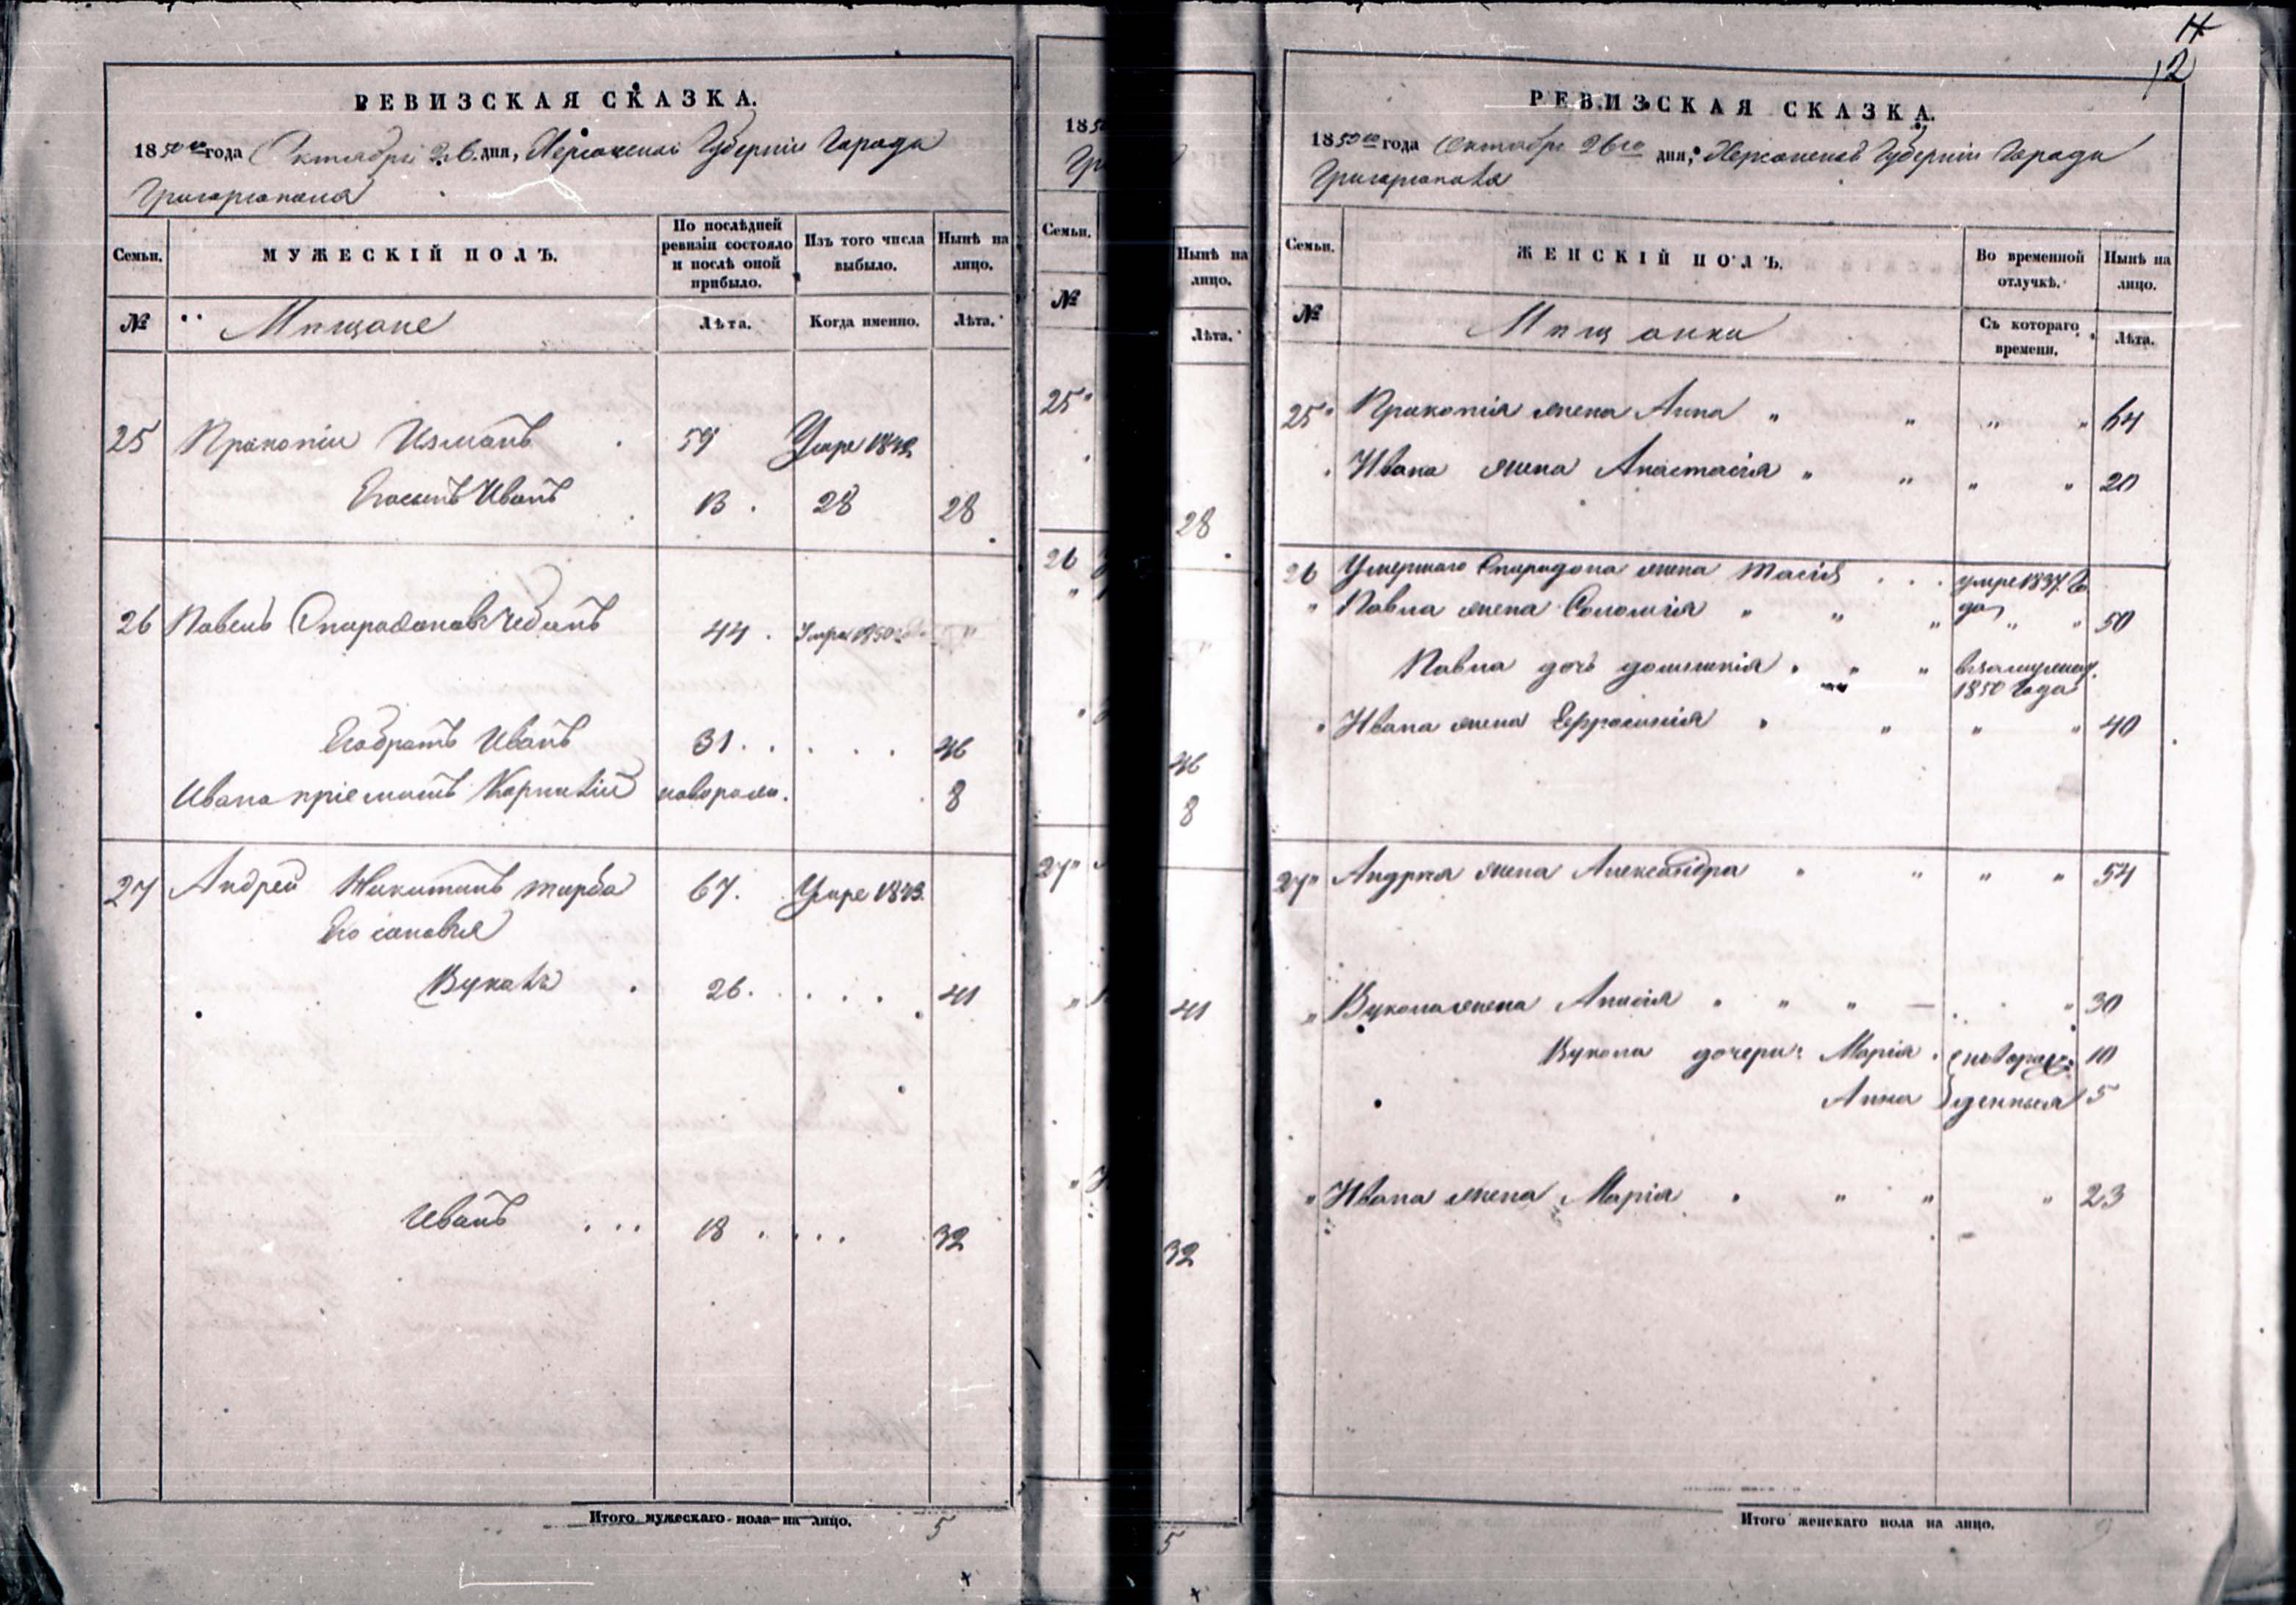 РЕВИЗСКАЯ СКАЗКА.
1850го года Октября 26. дня, Херсонской Губернии Города
Григориополя
Семьи.
МУЖЕСКІЙ ПОЛЪ.
По послѣдней ревизіи состояло и послѣ оной прибыло.
Изъ того числа выбыло.
Нынѣ на лицо.
№
Мѣщане
Лѣта.
Когда именно.
Лѣта.
25 Прокопій 59 Умре
Его сынъ Иванъ 13 . 28 28
26 Павелъ Спиридоновъ Чебанъ 44 . Умре 1850
Его братъ Иванъ 31 . . . . . 46
Ивана пріемышъ новорож. 8
27 Андрей Никитинъ 67. Умре 1843.
Его сыновья
Вукола . 26. . . . . 41
Иванъ . . . 18 . . . . 32
Итого мужескаго пола на лицо. 5
1850
Гр
Семьи.
№
25
26
27
Нынѣ на лицо.
Лѣта.
28
46
8
41
32
5
4
12
РЕВИЗСКАЯ СКАЗКА.
1850го года Октября 26го дня, Херсонской Губерніи Города
Григориополя
Семьи.
ЖЕНСКІЙ ПОЛЪ.
Во временной отлучкѣ.
Нынѣ на лицо.
№
Мѣщанки
Съ котораго времени.
Лѣта.
25 Прокопія жена Анна " " " " 64
Ивана жена Анастасія " " " " 20
26 Умершаго Спиридона жена . . . умре 1837 го
да
" Павла жена Соломія " " " " " 50
Павла дочь " " " в замуж.
1850 года
" Ивана жена Ефросинія " " " " 40
27 Андрея жена Александра " " " " 54
" Вукола жена Анисія " " " " 30
Вукола дочери: Марія . новорож 10
Анна денныя 5
" Ивана жена Марія " " " " 23
Итого женскаго пола на лицо. 9